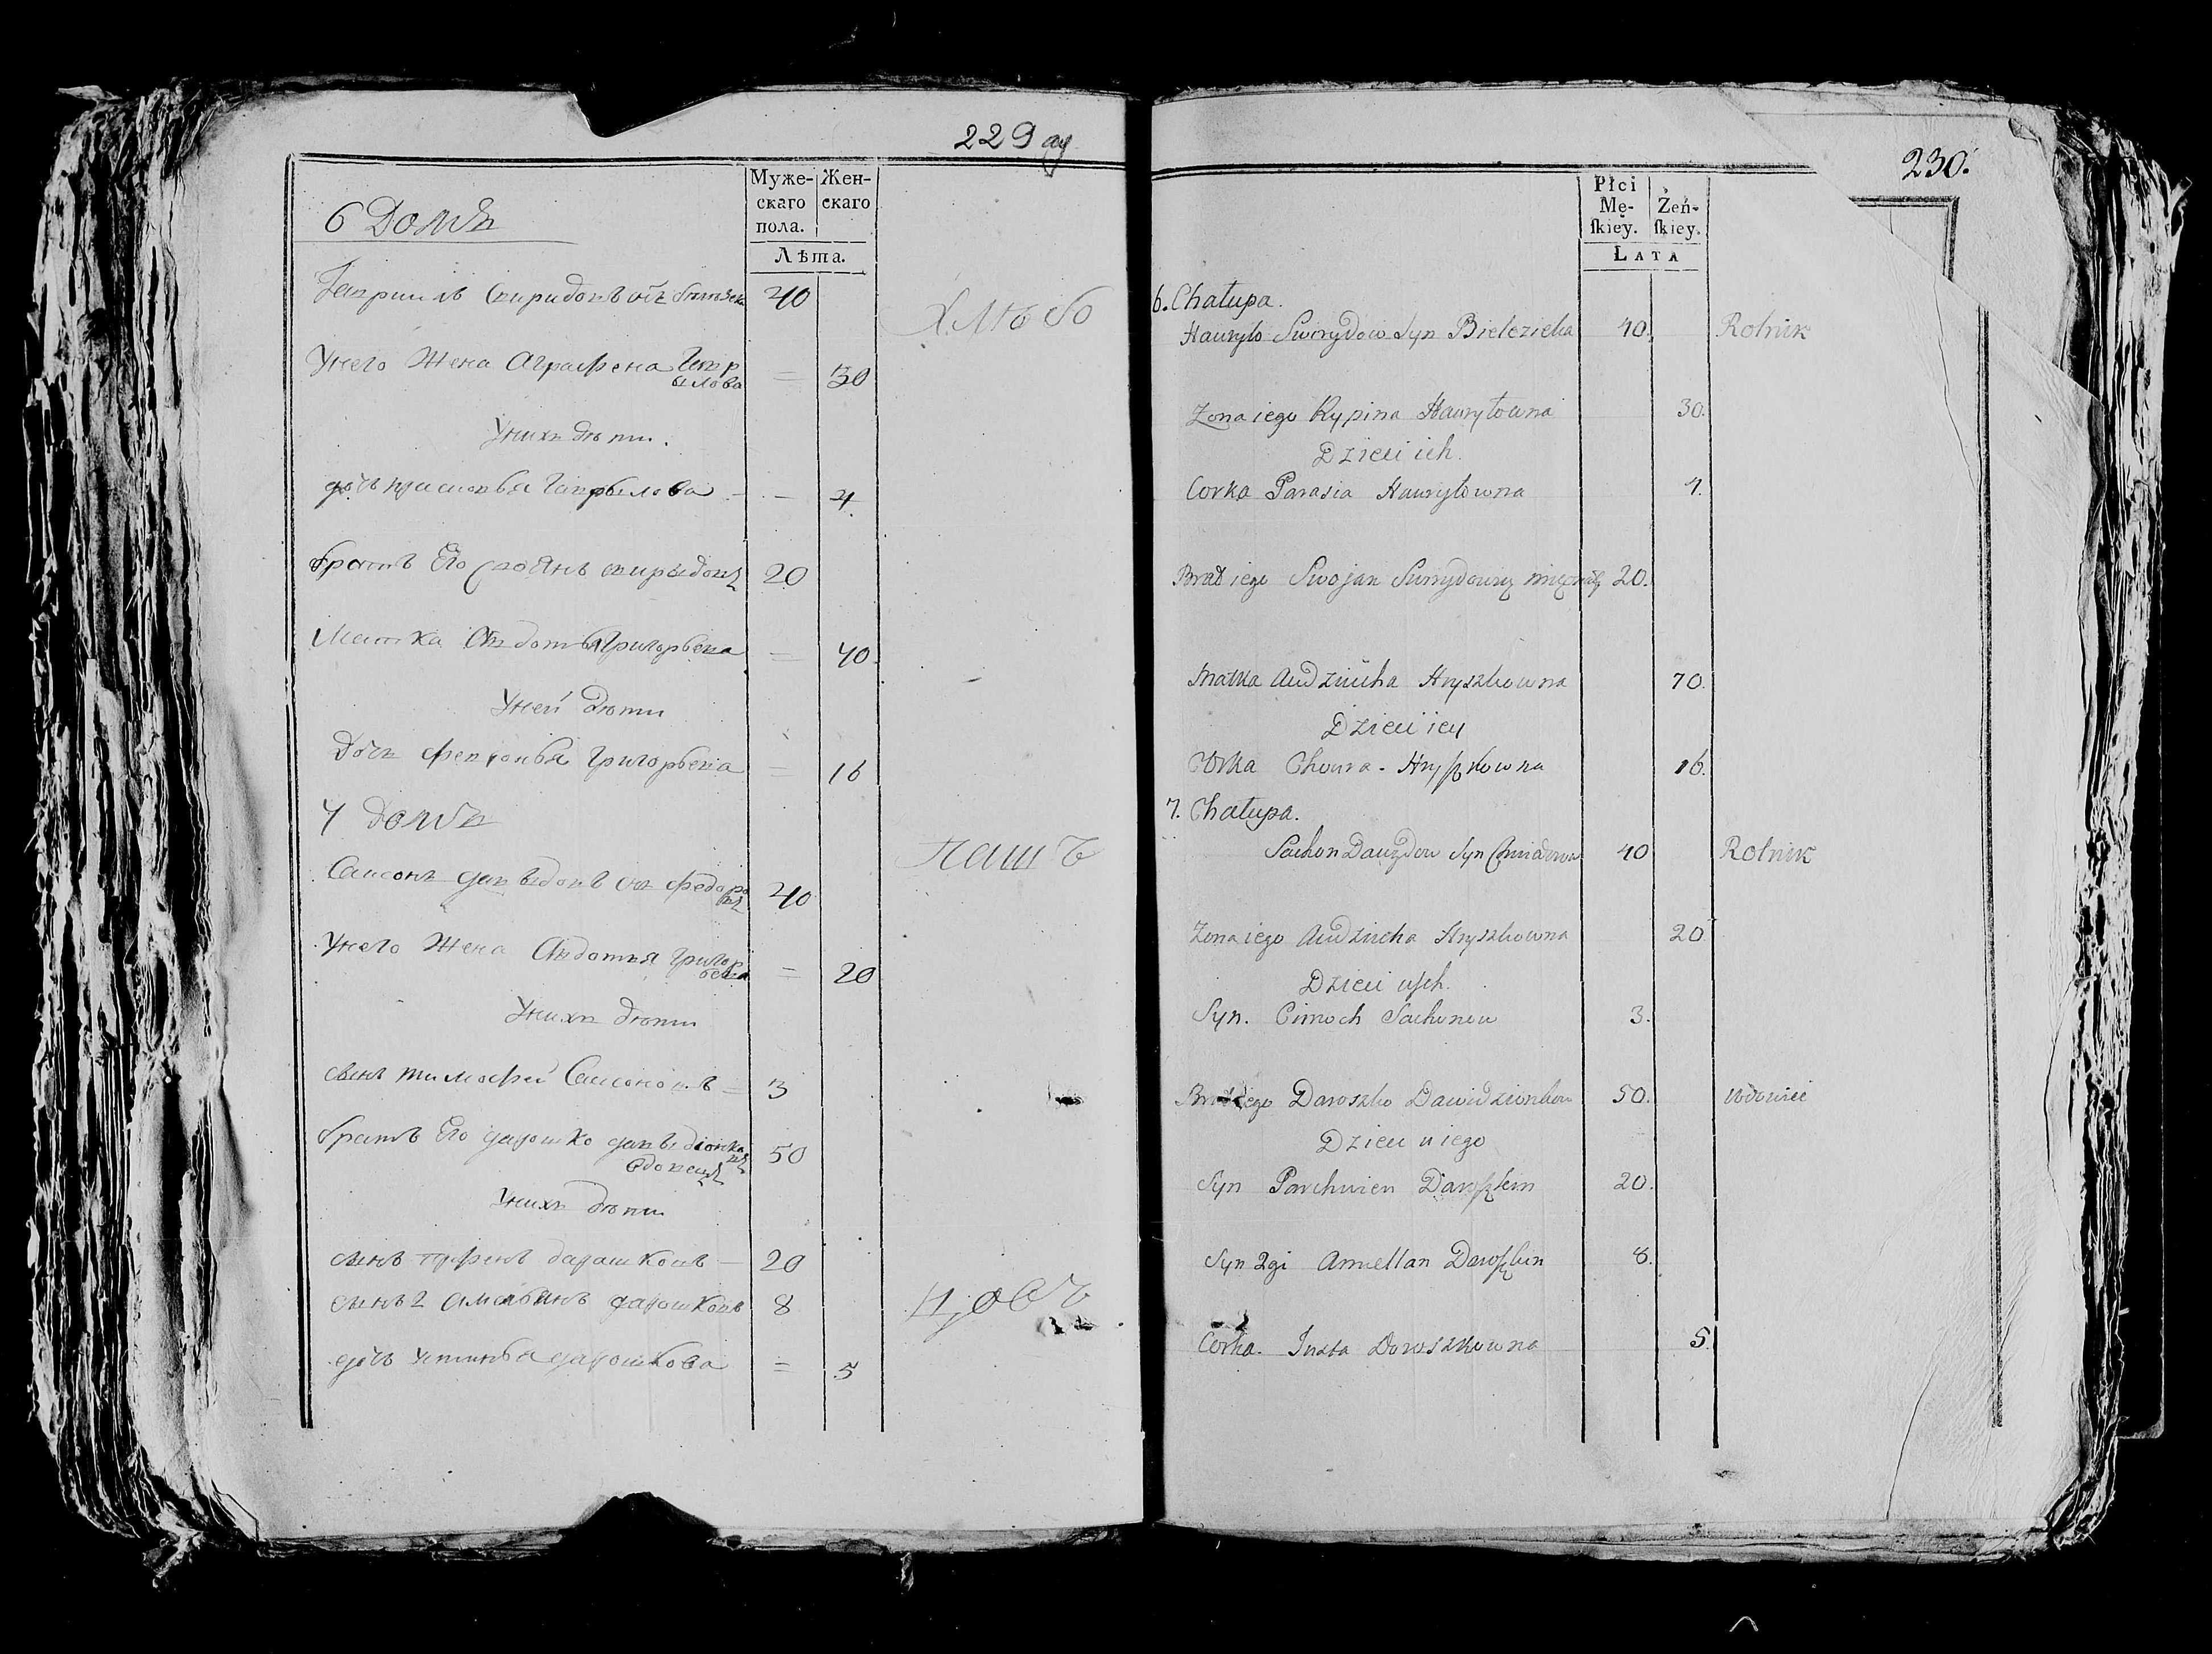 229 об
Муже-
скаго
пола.
Жен-
скаго
Лѣта.
6 Домъ
Гаврилъ Спиридонъ сынъ 40
Хлѣбо
Унего Жена Аграфена Гавр
ылова = 30
Унихъ дѣти.
дочь прасковья Гаврылова - - 4
братъ Его своянъ спирыдонъ 20
Матка Авдотья Григорьева = 40
Уней Дѣти
Дочь Григорьева = 16
7 домъ
пашъ
Самсонъ давыдовъ сынъ федоро
въ 40
Унего Жена Авдотья Григор
бева = 20
Унихъ дѣти
сынъ тимофей Самсоновъ = 3
братъ Его дарошко давыдіонко
въ 50
вдовецъ
Унихъ дѣти
сынъ парфенъ дарашковъ - 20
сынъ 2 амельянъ дарошковъ 8
дочь устинья дарошкова = 5
230.
Płci
Mę-
ſkiey.
Żeń-
ſkiey.
LATA
6. Chałupa.
Hauryło Swirydow Syn Bielezieka 40. Rolnik
Zona iego Kypina Hauryłowna 30.
Dzieci ich.
Corka Parasia Hauryłowna 4.
Brat iego Swojan 20.
Matka Audziucha Hryszkowna 70.
Dzieci iey
Corka Chowra - Hryſzkowna 16.
7. Chałupa.
Sachon Dauydow Syn 40 Rolnik
Zona iego Audziucha Hryszkowna 20
Dzieci
Syn. Cimoch Sachonow 3.
Brat iego Daroszko Dawidzionkow 50. wdowiec
Dzieci u iego
Syn Parchwien Daroſzkin 20.
Syn 2gi Amiellan Daroſzkin 8.
Corka. Justa Doroszkowna 5.